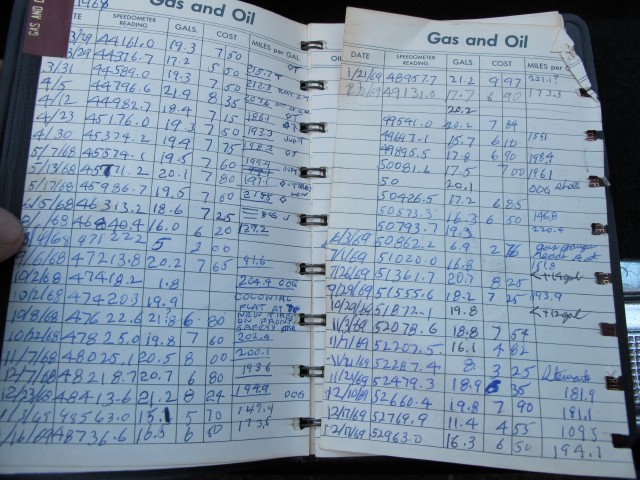 GAS AND O
1968
Gas and Oil
TE SPEEDOMETER READING GALS. COST MILES per GAL.
3/29 44161.0 19.3 7 50
3/29 44376.7 17.2 5 50 215.7
3/31 44589. 19.3 7 50
4/5 44796.6 21.9 8 35
4/12 44982.7 18.4 7 15
4/23 45176.0 19.3 7 50 193.3
4/30 45374.2 19.9 7 75 198.2
5/7/68 45574.1 19.5 7 60 199.9
5/13/68 45771.2 20.1 7 80 197.1
5/17/68 45986.7 19.5 7 60
6/5/68 46313.2 18.6 7 25
/68 46840.4 16.0 6 20 127.2
/4/68 47122.2 5 2 00
/68 47213.8 20.2 7 65 91.6
10/2/68 47418.2 1.8 204.4 OOG
10/2/68 47420.3 19.9 COLONIAL
FLAT AT
NEW TIRES
ON FRONT
10/8/68 47622.6 21.8 6 80
10/22/68 47825.0 19.8 7 60 202.4
11/7/68 48025.1 20.5 8 00 200.1
12/7/68 48218.7 20.7 6 80 193.6
12/23/68 48413.6 21.2 8 24 194.9 OOG
1/3/69 48563.0 15.1 5 70 149.4
1/16/69 48736.6 16.5 6 80 173.6
Gas and Oil
DATE SPEEDOMETER READING GALS. COST MILES per
1/21/69 48957.7 21.2 9 97 221.1
49131.0 17.7 6 90 173.3
20.2
49541.0 20.2 7 84
49697.1 15.7 6 10 1551
49895.5 17.8 6 90 1984
50081.6 17.5 7 00 1861
50 20.1 OOG Shell
50426.5 17.2 6 85
50573.3 16.3 6 50 1468
50793.7 19.3 220.4
6/3/69 50862.2 6.9 2 76 gas gauge
7/1/69 51020.0 16.8 151.8
7/26/69 51361.7 20.7 8 25
9/29/69 51555.6 18.2 7 25 193.9
10/20/69 51872.1 19.8
11/3/69 52078.6 18.8 7 54
11/7/69 52202.5 16.1 4 82
11/21/69 52287.4 8. 3 25
11/21/69 52479.3 18.9 6 35 181.9
12/10/69 52660.4 19.8 7 90 181.1
12/17/69 52769.9 11.4 4 55 1095
12/17/69 52963.0 16.3 6 50 194.1